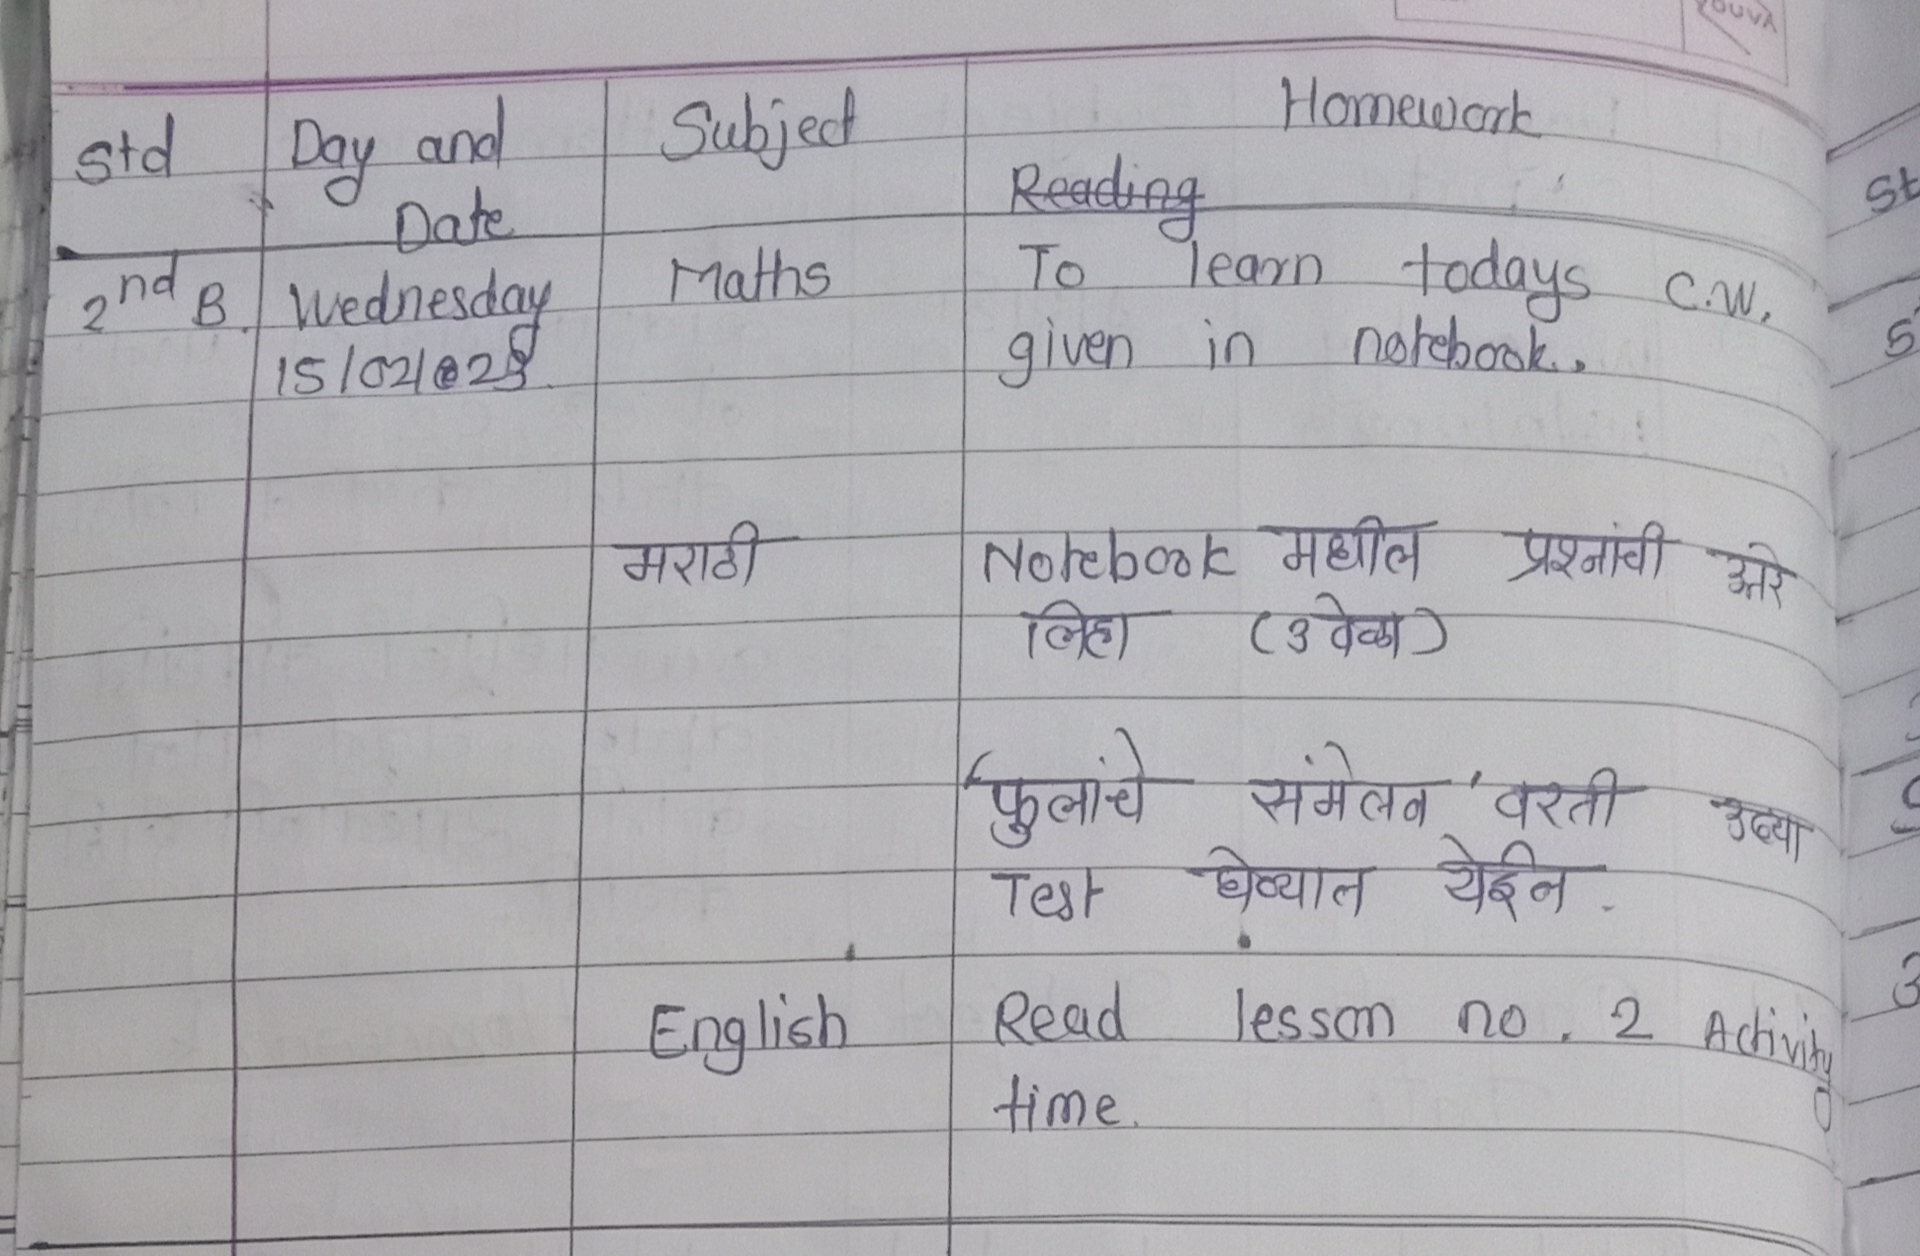 YOUVA
Std Day and Date Subject Homework
Reading
2nd B. Wednesday Maths To learn todays C.W.
15/02/23 given in notebook.
मराठी Notebook मधील प्रश्नांची उत्तरे
लिहा (३ वेळा)
'फुलांचे संमेलन' वरती उद्या
Test घेण्यात येईल.
English Read lesson no. 2 Activity
time.